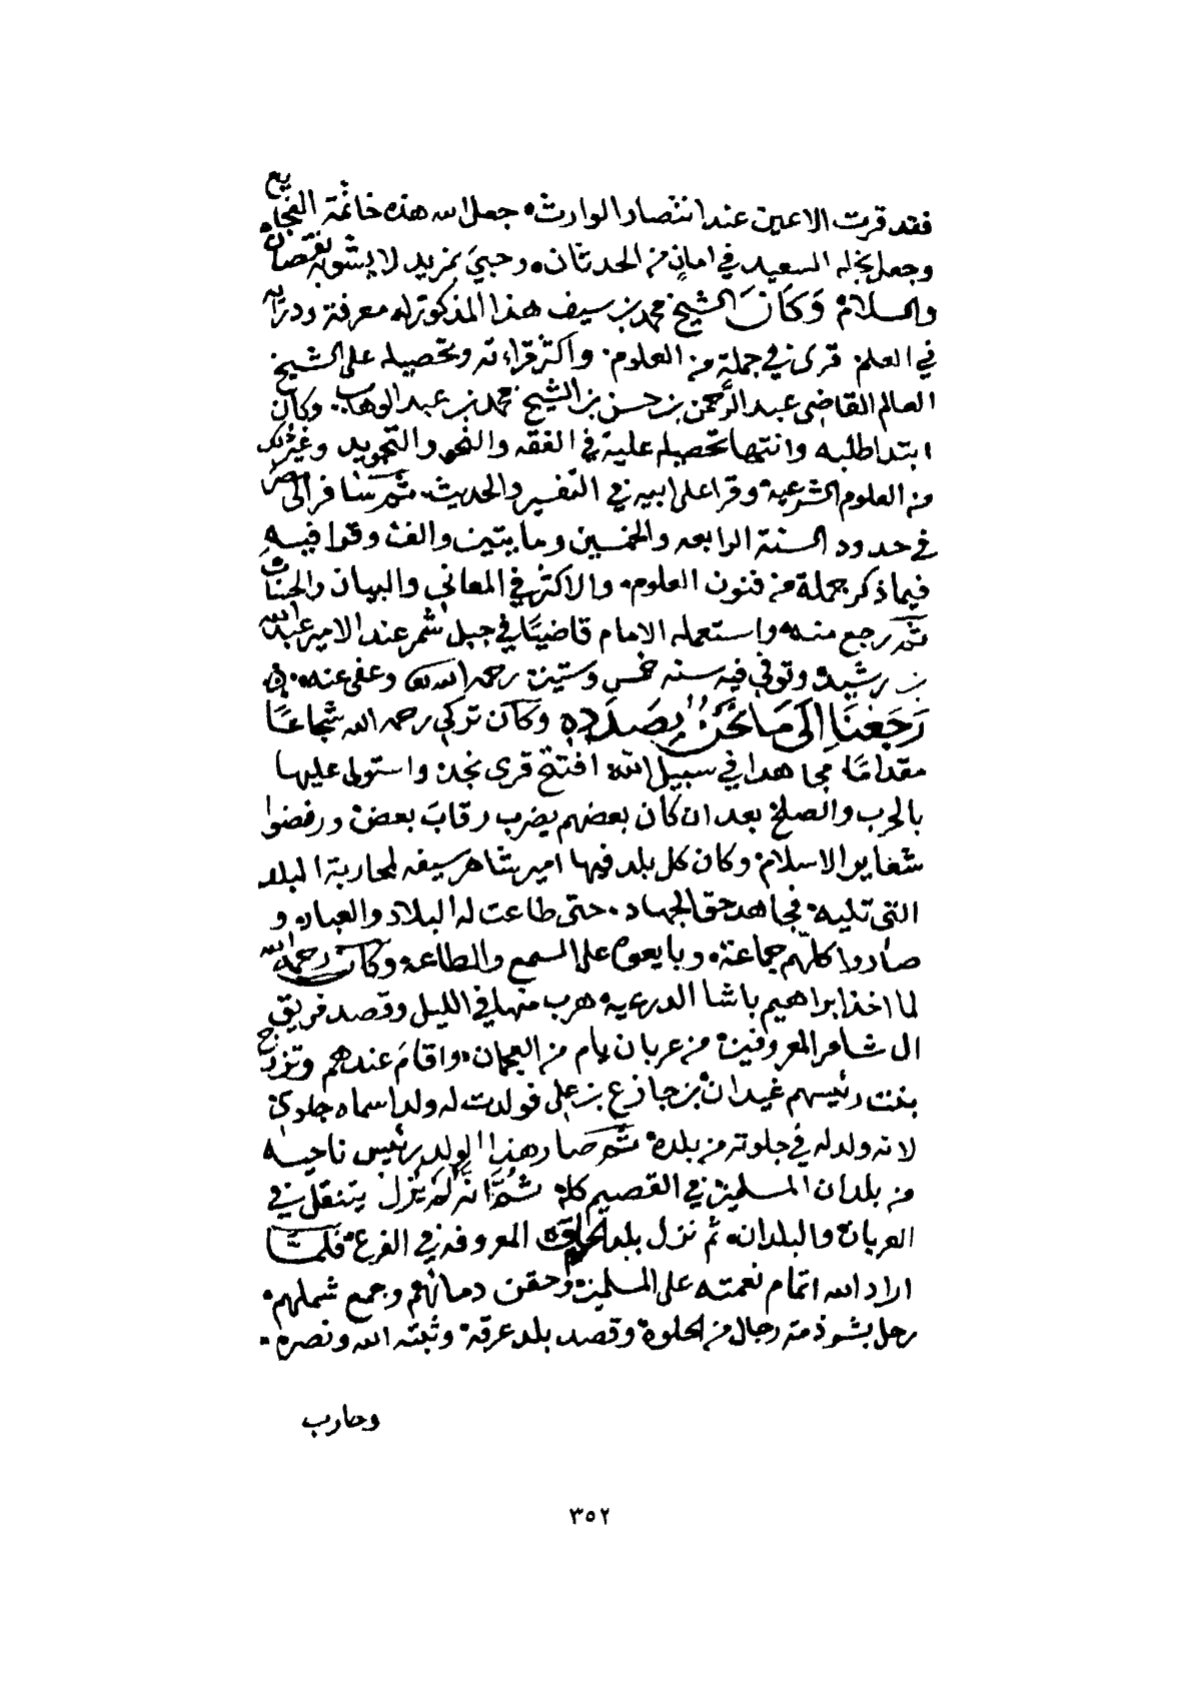 فقد قرت الاعين عند انتصار الوارث جعل الله هذه خاتمة الفجايع
وجعل نجله السعيد في امان من الحدثان وحبي بمزيد لا يشوبه نقصان
والسلام وكان الشيخ محمد بن سيف هذا المذكور له معرفة ودراية
في العلم قرى في جملة من العلوم واكثر قراءته وتحصيله على الشيخ
العالم القاضي عبد الرحمن بن حسن بن الشيخ محمد بن عبد الوهاب وكان
ابتدا طلبه وانتها تحصيله عليه في الفقه والنحو والتجويد وغير ذلك
من العلوم الشرعية وقرا على ابيه في التفسير والحديث ثم سافر الى مصر
في حدود السنة الرابعه والخمسين ومايتين والف وقرا فيه
فيما ذكر جملة من فنون العلوم والاكثر في المعاني والبيان والحساب
ثم رجع منه واستعمله الامام قاضيًا في جبل شمر عند الامير عبد الله
بن رشيد وتوفي فيه سنه خمس وستين رحمه الله وعفى عنه
رَجَعْنَا الَى مَا نَحْنُ بِصَدَدِه وكان تركي رحمه الله شجاعًا
مقدامًا مجاهدا في سبيل الله افتتح قرى نجد واستولى عليها
بالحرب والصلح بعد ان كان بعضهم يضرب رقاب بعض ورفضوا
شعاير الاسلام وكان كل بلد فيها امير شاهر سيفه لمحاربة البلد
التي تليه فجاهد حق الجهاد حتى طاعت له البلاد والعباد و
صاروا كلهم جماعة وبايعوه على السمع والطاعه وكان رحمه الله
لما اخذ ابراهيم باشا الدرعيه هرب منها في الليل وقصد فريق
ال شامر المعروفين من عربان يام من العجمان واقام عندهم وتزوج
بنت رئيسهم غيدان بن جازع بن علي فولدت له ولدا سماه جلوي
لانه ولد له في جلوته من بلده ثم صار هذا الولد رئيس ناحيه
من بلدان المسلمين في القصيم كله ثُمَّ انَّه لَم يَزل يتنقل في
العربان والبلدان ثم نزل بلد الحلوة المعروفه في الفرع فلما
اراد الله اتمام نعمته على المسلمين وحقن دمائهم وجمع شملهم
رحل بشرذمة رجال من الحلوة وقصد بلد عرقه وثبته الله ونصره
وحارب
٣٥٢